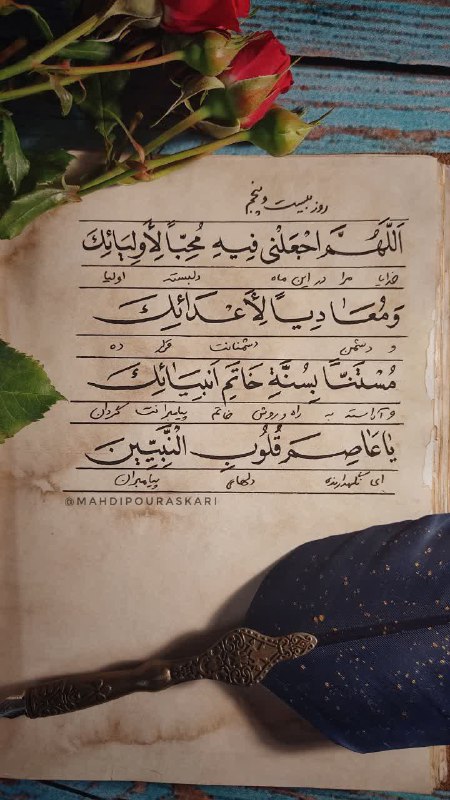 روز بیست و پنجم
اَللّٰهُمَّ اجْعَلْنی فیهِ مُحِبّاً لِأَوْلِیٰائِكَ
خدایا مرا در این ماه دلبسته اولیا
وَ مُعٰادِیاً لِأَعْدٰائِكَ
و دشمن دشمنانت قرار ده
مُسْتَنّاً بِسُنَّةِ خٰاتَمِ اَنْبِیٰائِكَ
و آراسته به راه و روش خاتم پیامبرانت گردان
یٰا عٰاصِمَ قُلُوبِ النَّبِیّینَ
ای نگهدارنده دلهای پیامبران
@MAHDIPOURASKARI